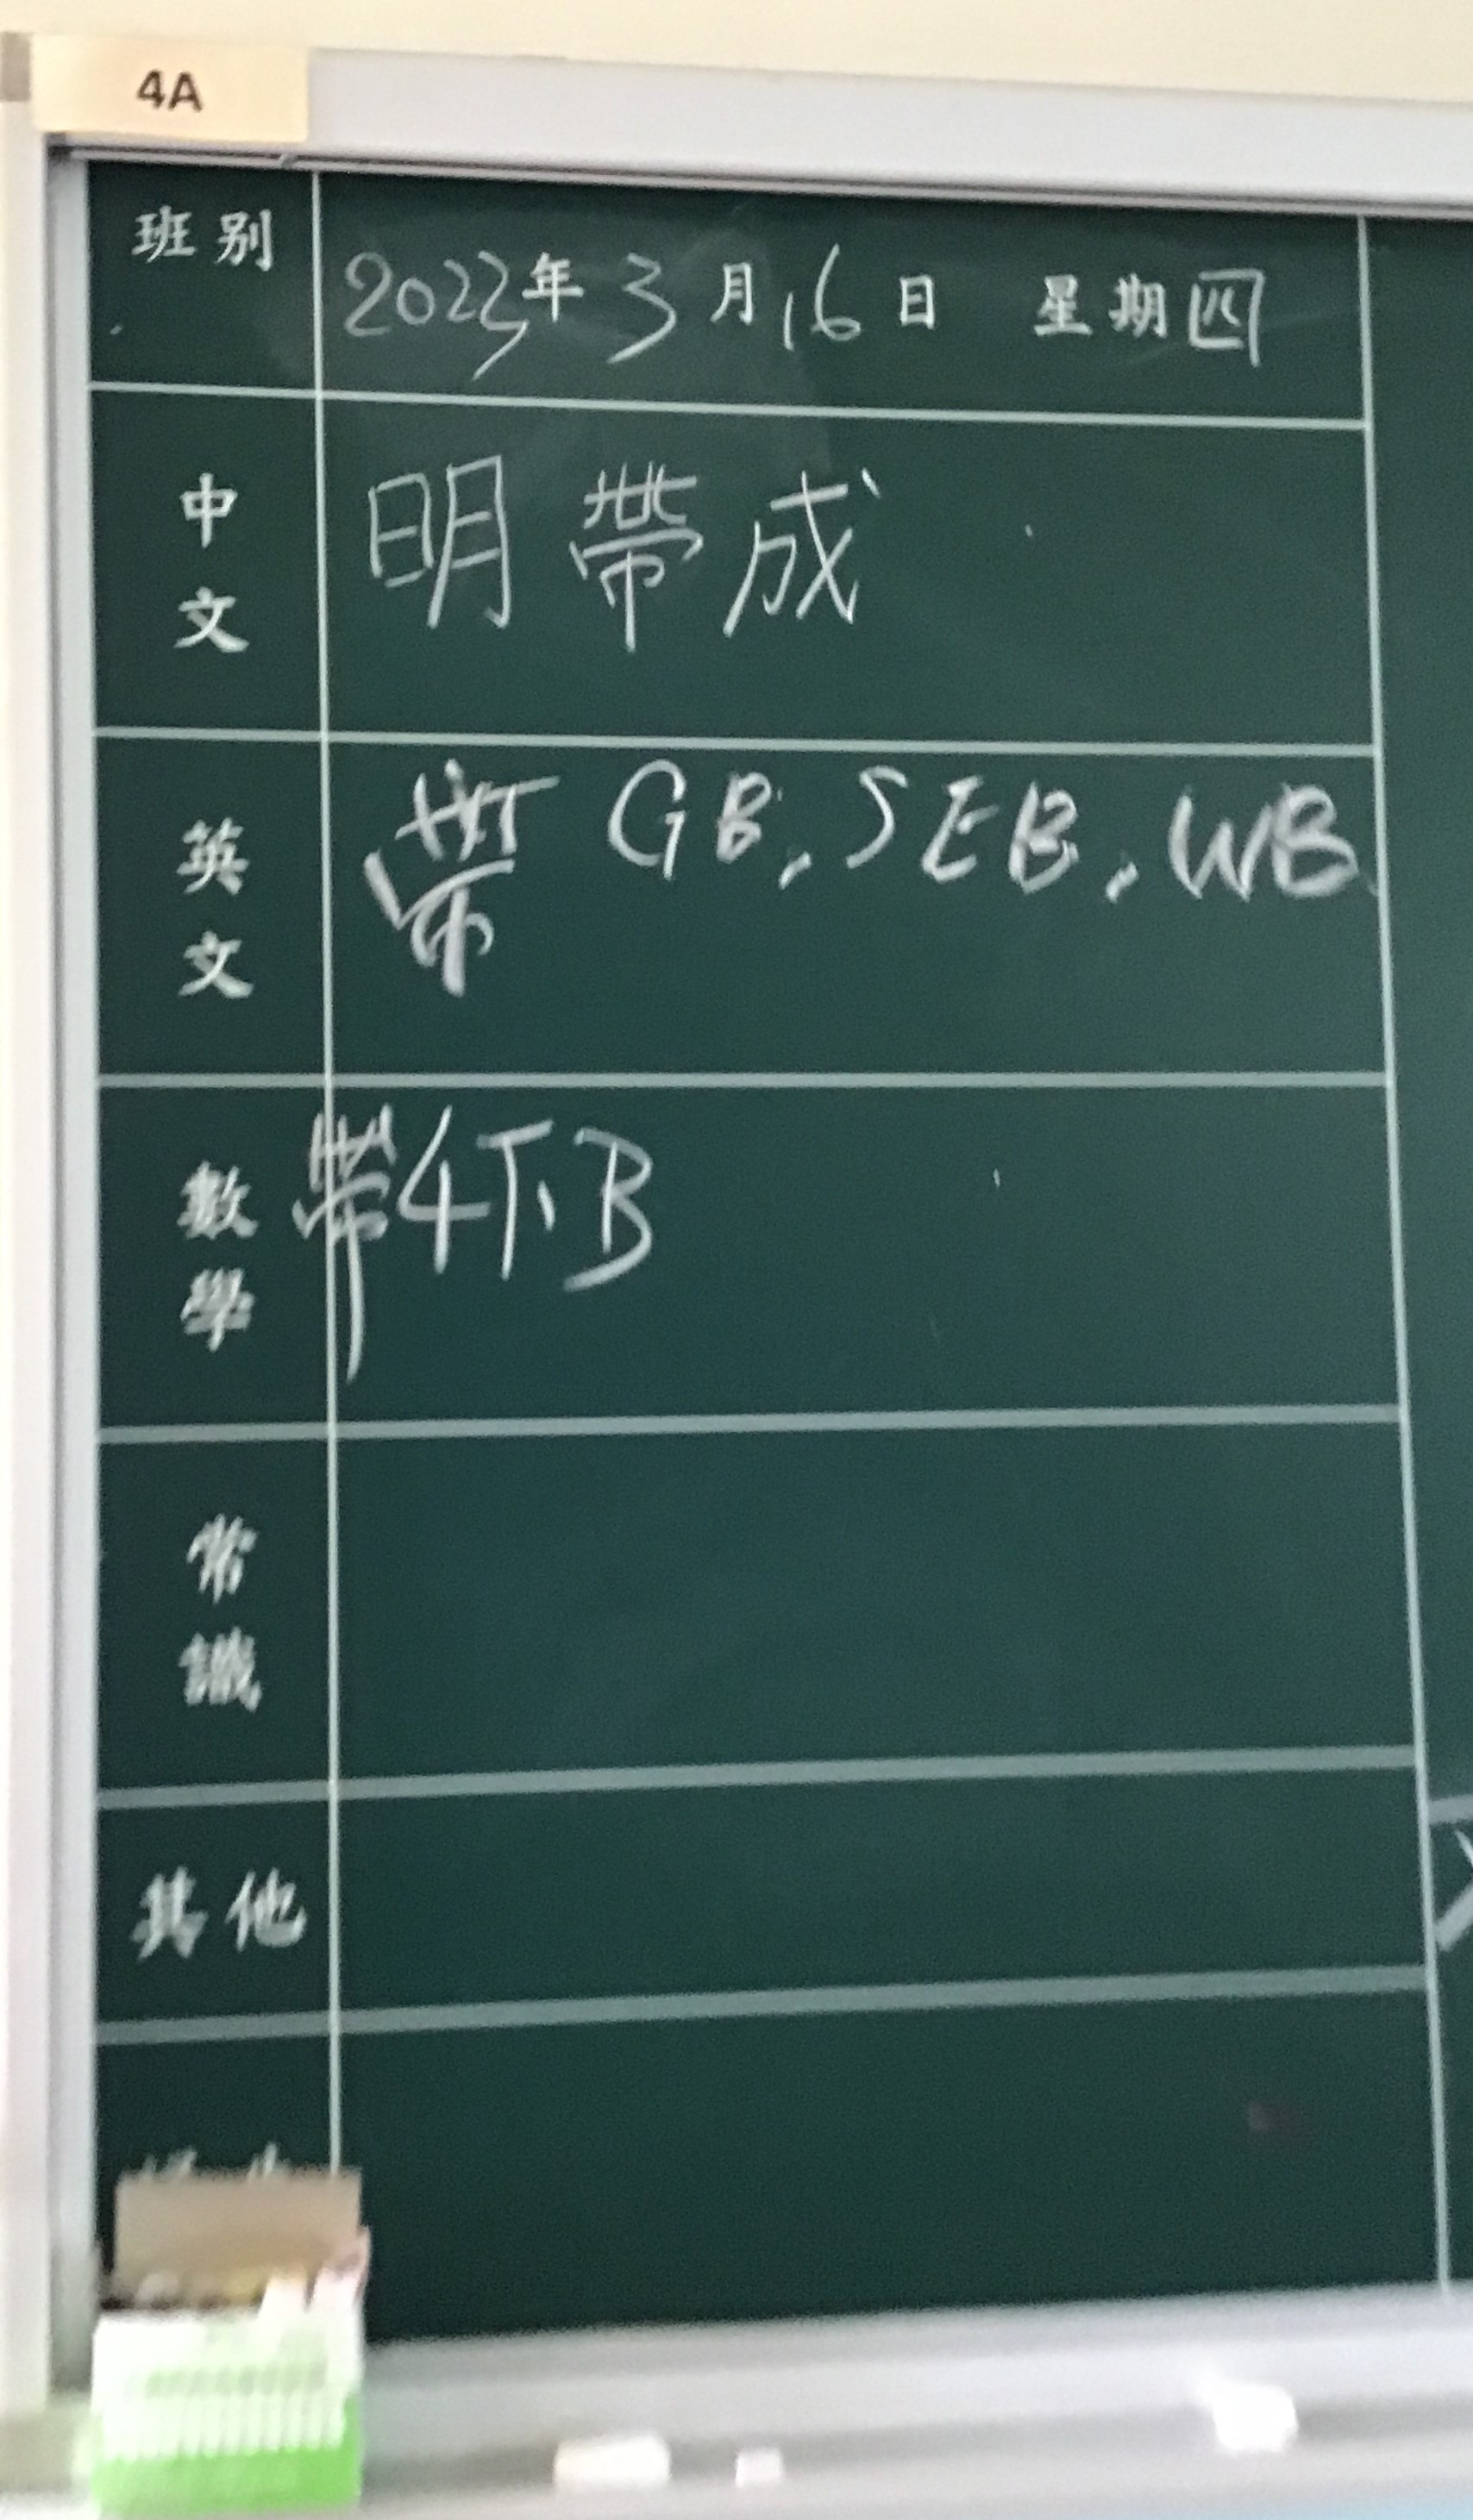 4A
班別 2023年3月16日 星期四
中文 明帶成
英文 帶 GB, SEB, WB
數學 帶4下B
常識
其他